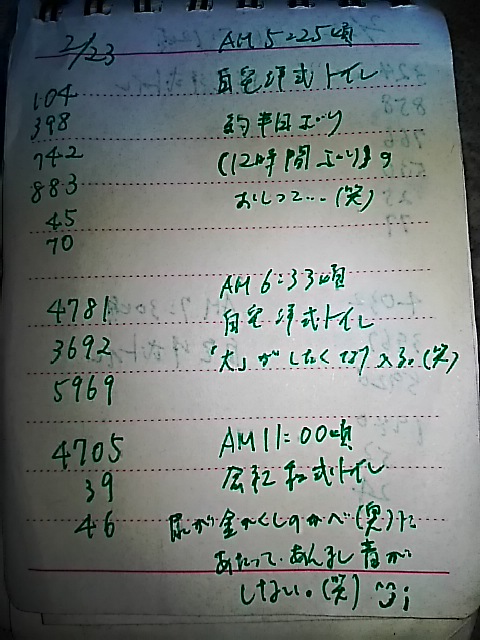 2/23 AM 5:25頃
104 自宅洋式トイレ
398 約半日ぶり
742 (12時間ぶり)の
883 おしっこ…(笑)
45
70
AM 6:33頃
4781 自宅洋式トイレ
3692 「大」がしたくなり入る。(笑)
5969
4705 AM 11:00頃
39 会社和式トイレ
46 尿が金かくしのかべ(奥)に
あたって、あんまし音が
しない。(笑)